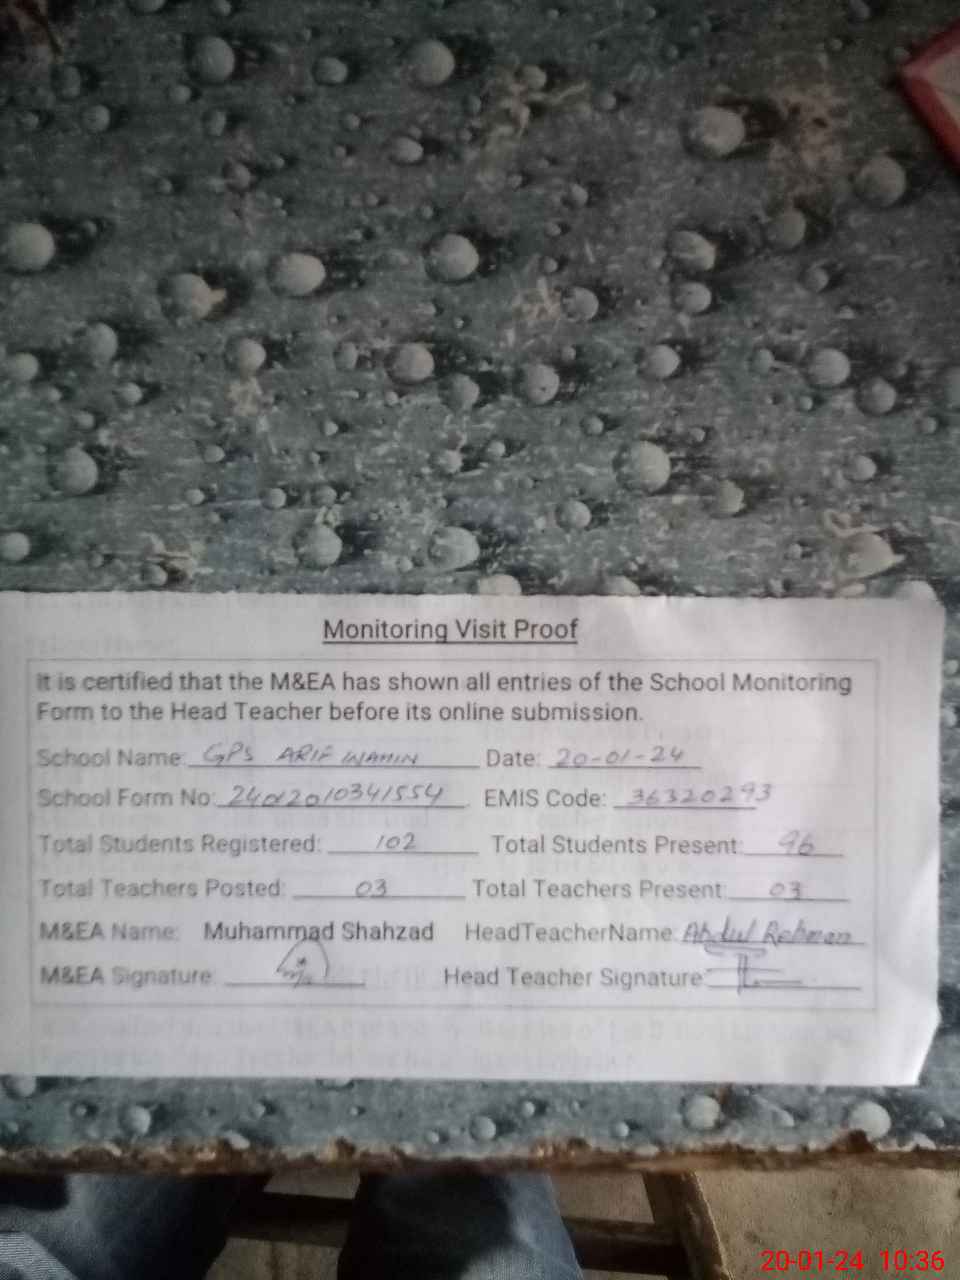 Monitoring Visit Proof
It is certified that the M&EA has shown all entries of the School Monitoring
Form to the Head Teacher before its online submission.
School Name: GPS ARIF WAHIN Date: 20-01-24
School Form No: 24012010341554 EMIS Code: 36320293
Total Students Registered: 102 Total Students Present: 96
Total Teachers Posted: 03 Total Teachers Present: 03
M&EA Name: Muhammad Shahzad HeadTeacherName: Abdul Rehman
M&EA Signature: Head Teacher Signature:
20-01-24 10:36